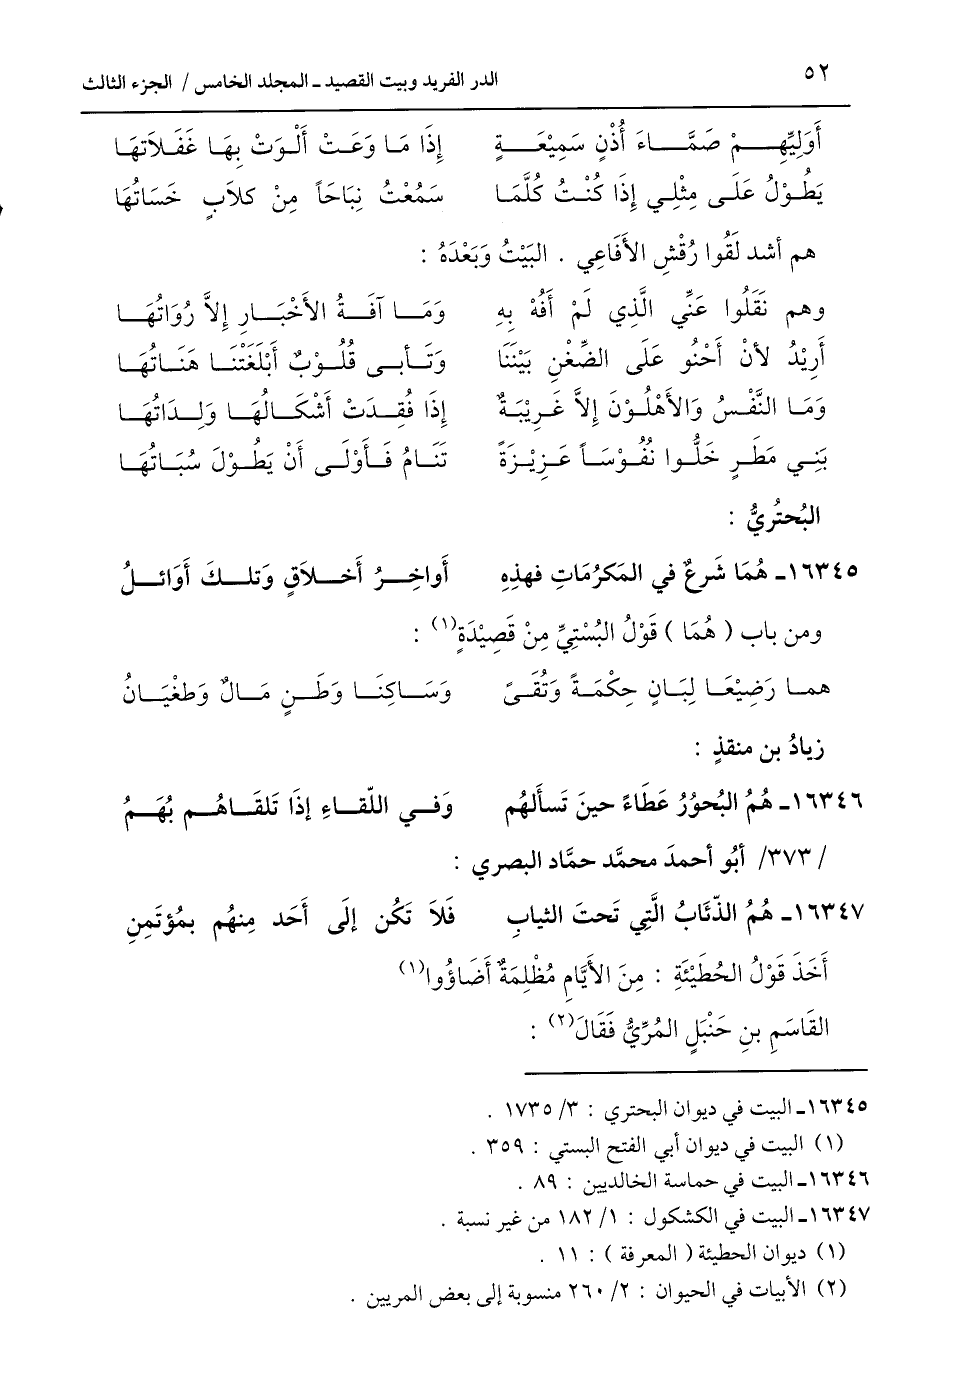 ٥٢
الدر الفريد وبيت القصيد ـ المجلد الخامس / الجزء الثالث
أَوَلِيِّهِمْ صَمَّاءَ أُذْنٍ سَمِيْعَةٍ إِذَا مَا وَعَتْ أَلْوَتْ بِهَا غَفَلَاتهَا
يَطُوْلُ عَلَى مِثْلِي إِذَا كُنْتُ كُلَّمَا سَمُعْتُ نِبَاحَاً مِنْ كلاَبٍ خَسَاتُهَا
هم أشد لَقُوا رُقْشِ الأَفَاعِي . البَيْتُ وَبَعْدَهُ :
وهم نَقَلُوا عَنِّي الَّذِي لَمْ أَفُهْ بِهِ وَمَا آفَةُ الأَخْبَارِ إِلاَّ رُوَاتُهَا
أَرِيْدُ لأَنْ أَحْنُو عَلَى الضِّغْنِ بَيْنَنَا وَتَأبى قُلُوْبٌ أَبْلَغَتْنَا هَنَاتُهَا
وَمَا النَّفْسُ وَالأَهْلُوْنَ إِلاَّ غَرِيْبَةٌ إِذَا فُقِدَتْ أَشْكَالُهَا وَلِدَاتُهَا
بَنِي مَطَرٍ خَلُّوا نُفُوْسَاً عَزِيْزَةً تَنَامُ فَأَوْلَى أَنْ يَطُوْلَ سُبَاتُهَا
البُحتُريُّ :
١٦٣٤٥ـ هُمَا شَرعٌ في المَكرُمَاتِ فهذِهِ أَواخِرُ أَخلاَقٍ وَتلكَ أَوَائلُ
ومن باب ( هُمَا ) قَوْلُ البُسْتِيِّ مِنْ قَصِيْدَةٍ(١) :
هما رَضِيْعَا لِبَانٍ حِكْمَةً وَتُقَىً وَسَاكِنَا وَطَنٍ مَالٌ وَطغْيَانُ
زيادُ بن منقذٍ :
١٦٣٤٦ـ هُمُ البُحوْرُ عَطَاءً حينَ تَسألهُم وَفي اللّقاءِ إذَا تَلقَاهُم بُهَمُ
/ ٣٧٣/ أبُو أحمدَ محمَّد حمَّاد البصري :
١٦٣٤٧ـ هُمُ الذّئَابُ الَّتِي تَحتَ الثيابِ فَلاَ تَكُن إلَى أَحَد مِنهُم بمُؤتَمنِ
أَخَذَ قَوْلُ الحُطَيْئَةِ : مِنَ الأَيَّامِ مُظْلِمَةٌ أَضَاؤُوا(١)
القَاسَمِ بنِ حَنْبَلٍ المُرِّيُّ فَقَالَ(٢) :
١٦٣٤٥ـ البيت في ديوان البحتري : ٣/ ١٧٣٥ .
(١) البيت في ديوان أبي الفتح البستي : ٣٥٩ .
١٦٣٤٦ـ البيت في حماسة الخالديين : ٨٩ .
١٦٣٤٧ـ البيت في الكشكول : ١/ ١٨٢ من غير نسبة .
(١) ديوان الحطيئة ( المعرفة ) : ١١ .
(٢) الأبيات في الحيوان : ٢/ ٢٦٠ منسوبة إلى بعض المريين .